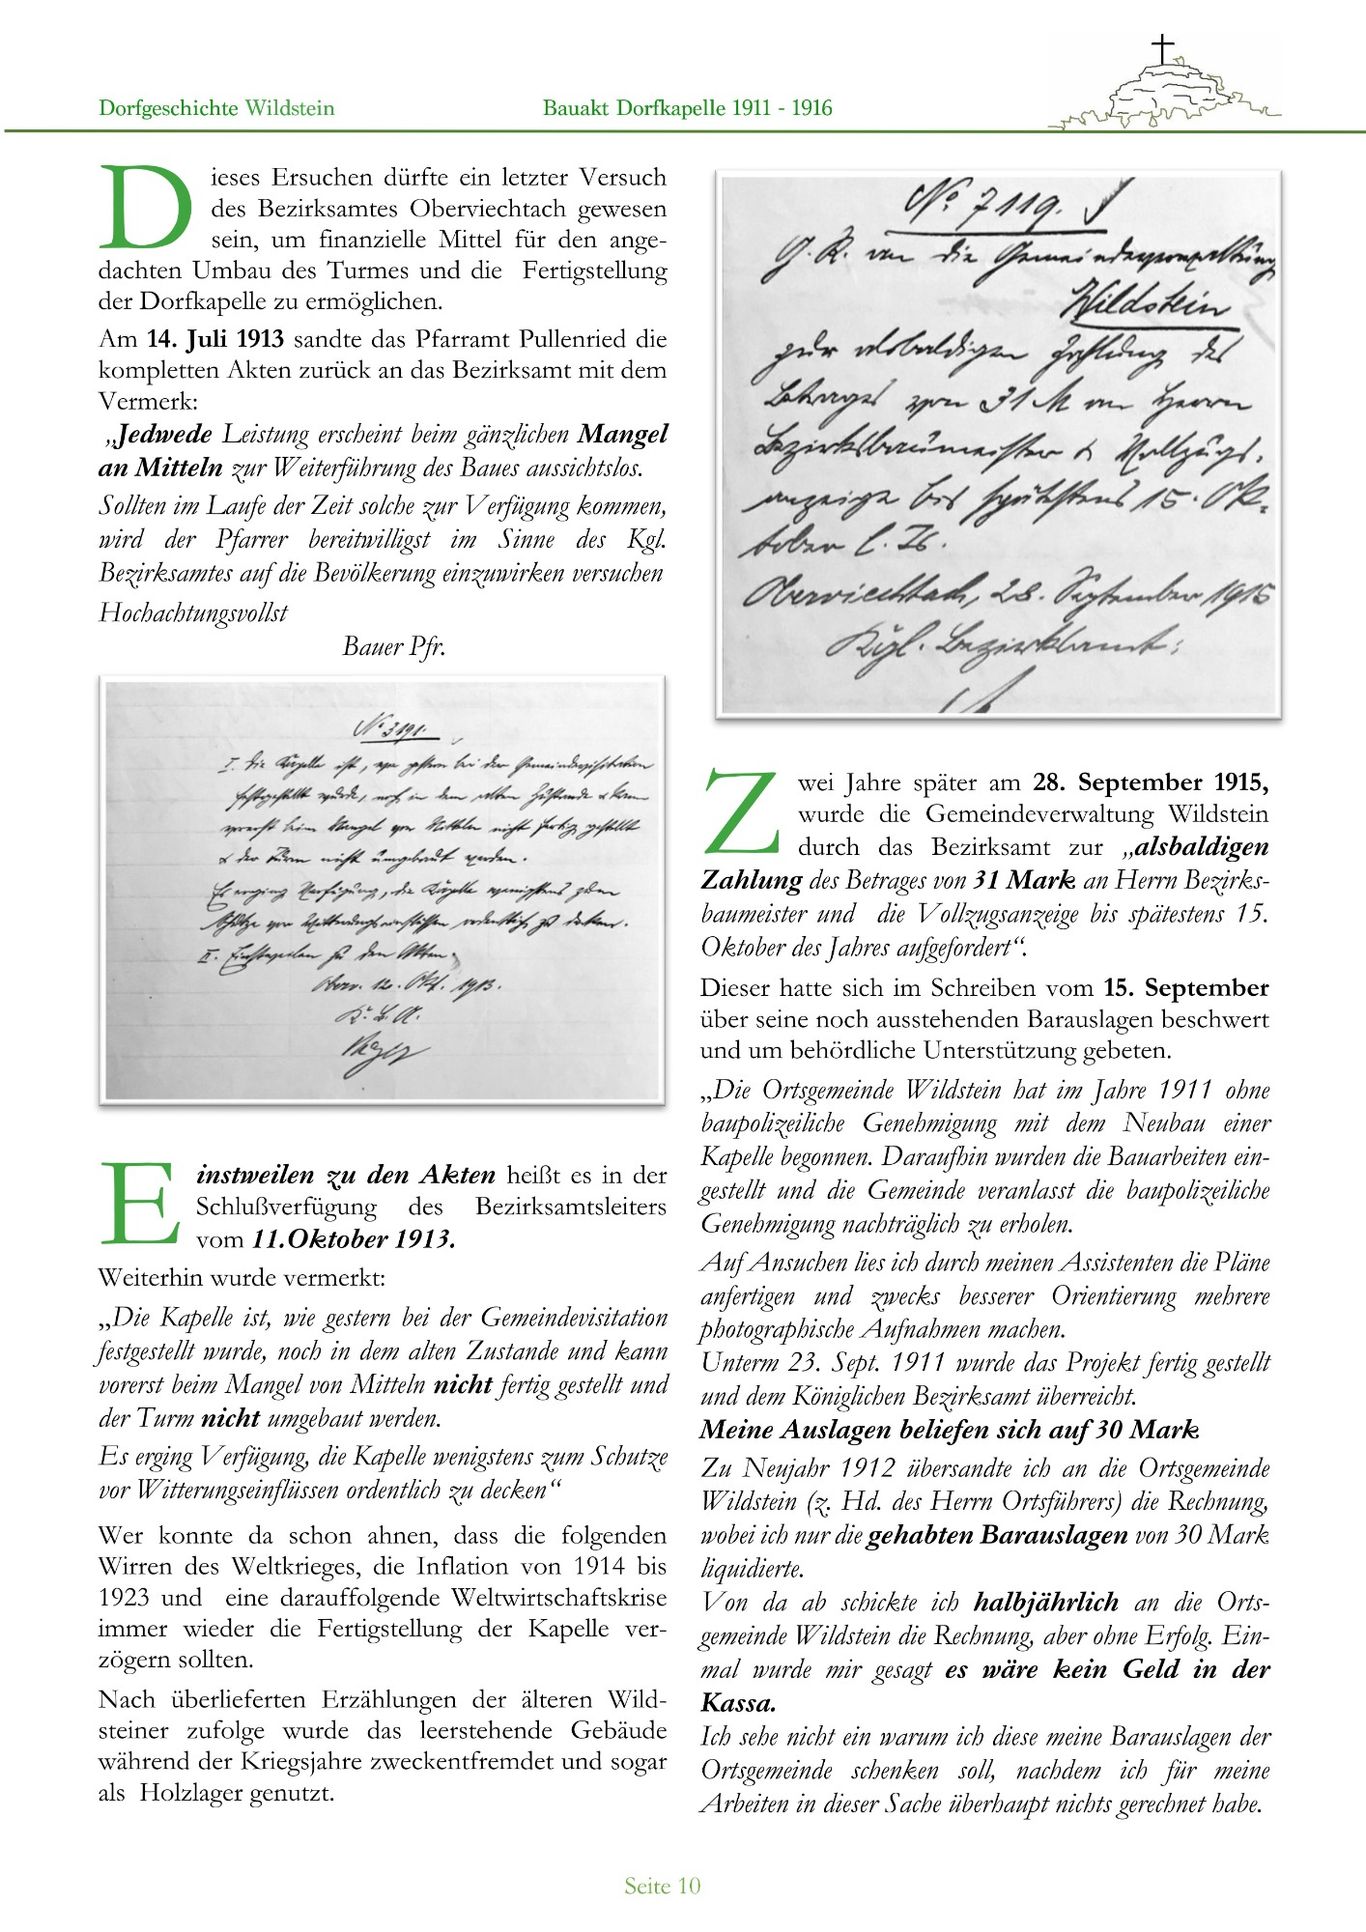 Dorfgeschichte Wildstein
Bauakt Dorfkapelle 1911 - 1916
Dieses Ersuchen dürfte ein letzter Versuch
des Bezirksamtes Oberviechtach gewesen
sein, um finanzielle Mittel für den ange-
dachten Umbau des Turmes und die Fertigstellung
der Dorfkapelle zu ermöglichen.
Am 14. Juli 1913 sandte das Pfarramt Pullenried die
kompletten Akten zurück an das Bezirksamt mit dem
Vermerk:
„Jedwede Leistung erscheint beim gänzlichen Mangel
an Mitteln zur Weiterführung des Baues aussichtslos.
Sollten im Laufe der Zeit solche zur Verfügung kommen,
wird der Pfarrer bereitwilligst im Sinne des Kgl.
Bezirksamtes auf die Bevölkerung einzuwirken versuchen
Hochachtungsvollst
Bauer Pfr.
No 3191.
I. Die Kapelle ist, wie gestern bei der Gemeindevisitation
festgestellt wurde, noch in dem alten Zustande & kann
vorerst beim Mangel von Mitteln nicht fertig gestellt
& der Turm nicht umgebaut werden.
Es erging Verfügung, die Kapelle wenigstens zum
Schutze vor Witterungseinflüssen ordentlich zu decken.
II. Einstweilen zu den Akten.
Oberv. 12. Okt. 1913.
K. B. A.
Einstweilen zu den Akten heißt es in der
Schlußverfügung des Bezirksamtsleiters
vom 11.Oktober 1913.
Weiterhin wurde vermerkt:
„Die Kapelle ist, wie gestern bei der Gemeindevisitation
festgestellt wurde, noch in dem alten Zustande und kann
vorerst beim Mangel von Mitteln nicht fertig gestellt und
der Turm nicht umgebaut werden.
Es erging Verfügung, die Kapelle wenigstens zum Schutze
vor Witterungseinflüssen ordentlich zu decken“
Wer konnte da schon ahnen, dass die folgenden
Wirren des Weltkrieges, die Inflation von 1914 bis
1923 und eine darauffolgende Weltwirtschaftskrise
immer wieder die Fertigstellung der Kapelle ver-
zögern sollten.
Nach überlieferten Erzählungen der älteren Wild-
steiner zufolge wurde das leerstehende Gebäude
während der Kriegsjahre zweckentfremdet und sogar
als Holzlager genutzt.
No 7119.
G. R. an die Gemeindeverwaltung
Wildstein
zur alsbaldigen Zahlung des
Betrages von 31 M an Herrn
Bezirksbaumeister & Vollzugs-
anzeige bis spätestens 15. Ok-
tober l. Js.
Oberviechtach, 28. September 1915
Kgl. Bezirksamt:
Zwei Jahre später am 28. September 1915,
wurde die Gemeindeverwaltung Wildstein
durch das Bezirksamt zur „alsbaldigen
Zahlung des Betrages von 31 Mark an Herrn Bezirks-
baumeister und die Vollzugsanzeige bis spätestens 15.
Oktober des Jahres aufgefordert“.
Dieser hatte sich im Schreiben vom 15. September
über seine noch ausstehenden Barauslagen beschwert
und um behördliche Unterstützung gebeten.
„Die Ortsgemeinde Wildstein hat im Jahre 1911 ohne
baupolizeiliche Genehmigung mit dem Neubau einer
Kapelle begonnen. Daraufhin wurden die Bauarbeiten ein-
gestellt und die Gemeinde veranlasst die baupolizeiliche
Genehmigung nachträglich zu erholen.
Auf Ansuchen lies ich durch meinen Assistenten die Pläne
anfertigen und zwecks besserer Orientierung mehrere
photographische Aufnahmen machen.
Unterm 23. Sept. 1911 wurde das Projekt fertig gestellt
und dem Königlichen Bezirksamt überreicht.
Meine Auslagen beliefen sich auf 30 Mark
Zu Neujahr 1912 übersandte ich an die Ortsgemeinde
Wildstein (z. Hd. des Herrn Ortsführers) die Rechnung,
wobei ich nur die gehabten Barauslagen von 30 Mark
liquidierte.
Von da ab schickte ich halbjährlich an die Orts-
gemeinde Wildstein die Rechnung, aber ohne Erfolg. Ein-
mal wurde mir gesagt es wäre kein Geld in der
Kassa.
Ich sehe nicht ein warum ich diese meine Barauslagen der
Ortsgemeinde schenken soll, nachdem ich für meine
Arbeiten in dieser Sache überhaupt nichts gerechnet habe.
Seite 10